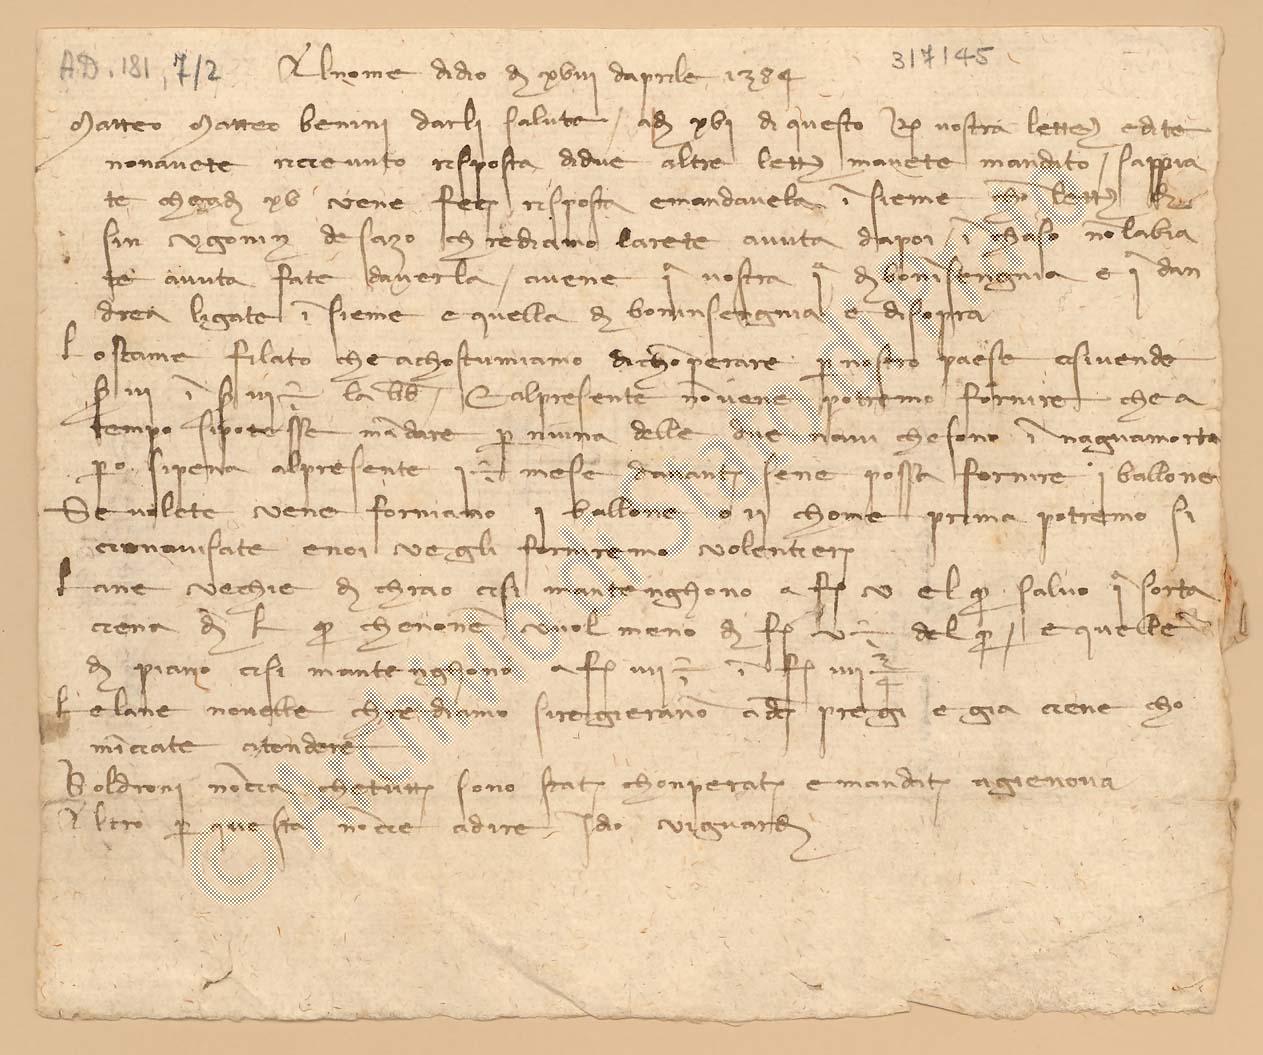 AD. 181, 7/2
317145
Al nome didio d xviii daprile 1384
Matteo Matteo benini darli salute / ad xvi di questo R vostra letter edite
nonavete riceuuto risposta didue altre letter mavete mandato / sappia
te chead xv vene fecj risposta emandavela ī sieme chō letter
sin ugonin de sazo chrediamo larete avuta dapoi ī chaso nō labia
te avuta fate daverla / avene vostra d boninsengnia e dan
drea ligate ī sieme e quella d boninsengnia e disopra
Lo stame filato che achostumiamo dichonperare p nostro paese cisivende
la / E alpresente nōvene potremo fornire che a
tempo sipotesse mādare p niuna delle due navi chesono ī naguamorta
po sipena alpresente mese davantj sene possa fornire i ballone
Se volete vene forniamo i ballone o ii chome prima potremo si
cienavisate enoi vegli forniremo volentierj
Lane vechie d chrao cisi mantenghono a f v el salvo sorta
ciena d chenonē vuol meno d f v del / e quelle
d piano cisi mantenghono a f iiii ī f iiii 3/4
Le lane novelle chrediamo siregieranō a pregi e gia ciene cho
mīciate atondere
Boldroni nōcia chetuttj sono statj chonperatj e mandatj agienova
Altro p questa nōcie adire Idio viguardj
© Archivio di Stato di Prato